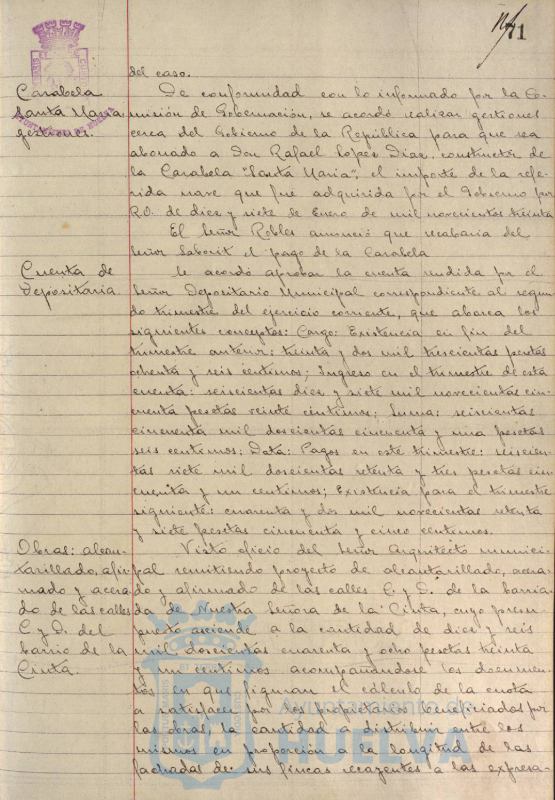 71
del caso.
Carabela
Santa Maria
gestiones.
De conformidad con lo informado por la Co-
misión de Gobernación, se acordó realizar gestiones
cerca del Gobierno de la República para que sea
abonado a Don Rafael Lopez Diaz, constructor de
la Carabela "Santa Maria", el importe de la refe-
rida nave que fue adquirida por el Gobierno por
R.O. de diez y siete de Enero de mil novecientos treinta
El Señor Robles anunció que recabaria del
Señor Saborit el pago de la Carabela
Cuenta de
Depositaria
Se acordó aprobar la cuenta rendida por el
Señor Depositario Municipal correspondiente al segun-
do trimestre del ejercicio corriente, que abarca los
siguientes conceptos: Cargo: Existencia en fin del
trimestre anterior: treinta y dos mil trescientas pesetas
ochenta y seis centimos; Ingreso en el trimestre de esta
cuenta: seiscientas diez y siete mil novecientas cin-
cuenta pesetas veinte centimos; Suma: seiscientas
cincuenta mil doscientas cincuenta y una pesetas
seis centimos; Data: Pagos en este trimestre: seiscien-
tas siete mil doscientas setenta y tres pesetas cin-
cuenta y un centimos; Existencia para el trimestre
siguiente: cuarenta y dos mil novecientas setenta
y siete pesetas cincuenta y cinco centimos.
Obras: alcan-
tarillado, afir-
mado y acera-
do de las calles
C y D. del
barrio de la
Cinta.
Visto oficio del Señor Arquitecto munici-
pal remitiendo proyecto de alcantarillado, acera-
do y afirmado de las calles C. y D. de la barria-
da de Nuestra Señora de la Cinta, cuyo presu-
puesto asciende a la cantidad de diez y seis
mil doscientas cuarenta y ocho pesetas treinta
y un centimos acompañandose los documen-
tos en que figuran el cálculo de la cuota
a satisfacer por los propietarios beneficiados por
las obras, la cantidad a distribuir entre los
mismos en proporción a la longitud de las
fachadas de sus fincas recayentes a las expresa-
Ayuntamiento de
HUELVA